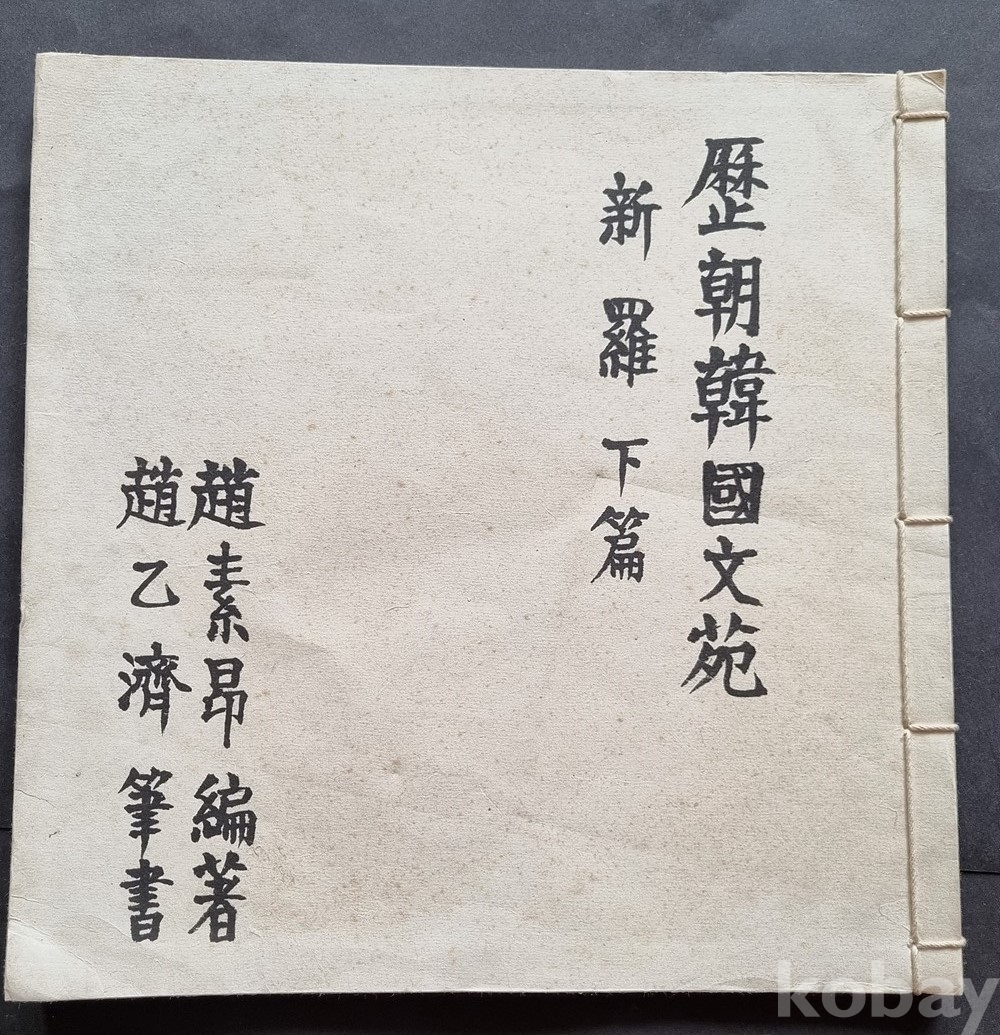 歷朝韓國文苑
新羅下篇
趙素昻編著
趙乙濟筆書
kobay